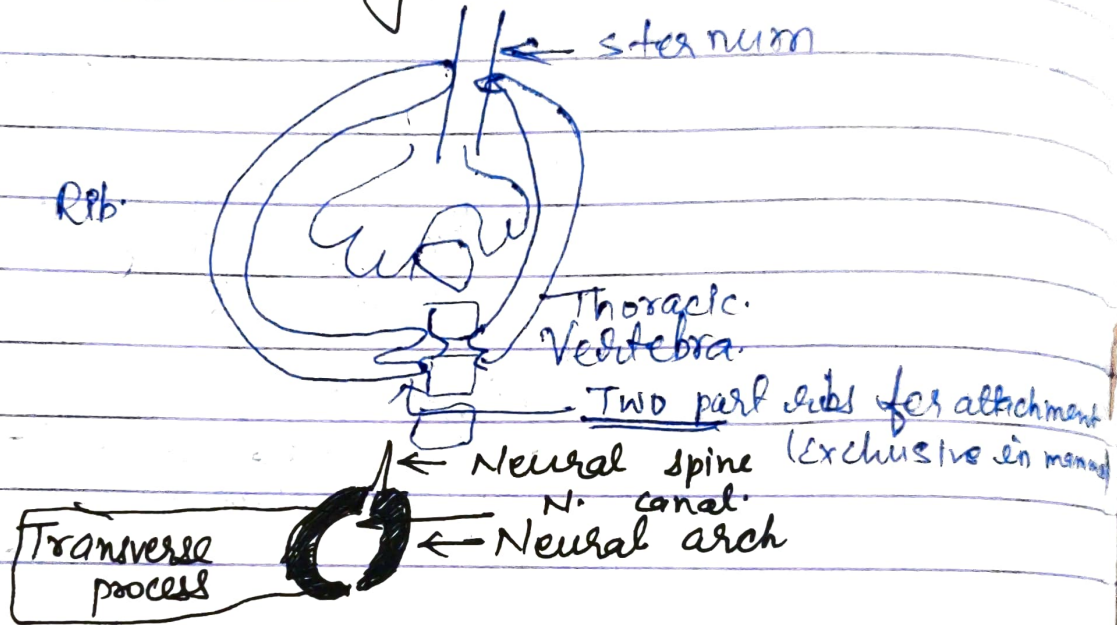 sternum
Rib.
Thoracic.
Vertebra.
Two part ribs for attachment
(Exclusive in mammal
Neural spine
N. canal.
Neural arch
Transverse
process